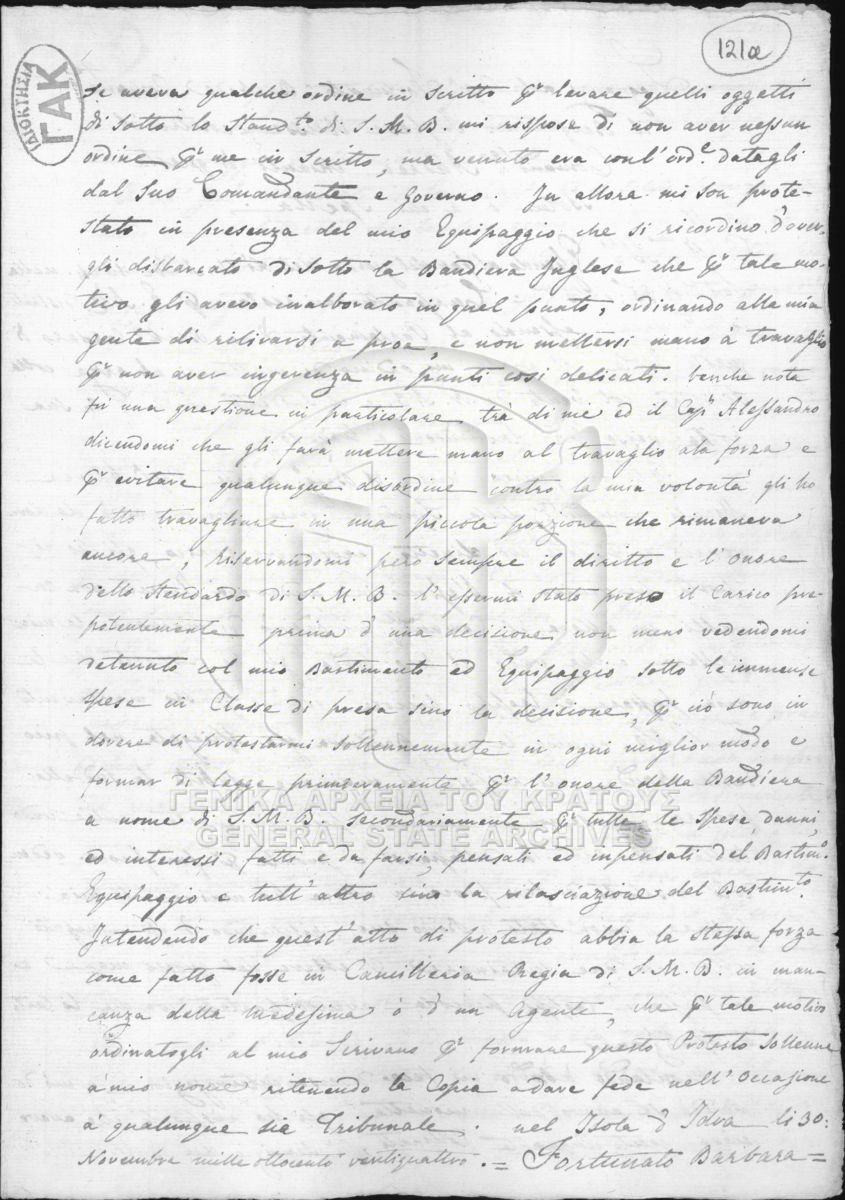 121α
ΙΔΙΟΚΤΗΣΙΑ
ΓΑΚ
Se aveva qualche ordine in scritto Pr levare quelli oggetti
di sotto lo Stand.to di S. M. B. mi rispose di non aver nessun
ordine Pr me in Scritto, ma venuto era con l'ord.e datagli
dal Suo Comandante e Governo. In allora mi son prote-
stato in presenza del mio Equipaggio che si ricordino d'aver-
gli disbarcato di sotto la Bandiera Inglese che Pr tale mo-
tivo gli avevo inalborato in quel punto, ordinando alla mia
gente di ritirarsi a proa, e non mettersi mano à travaglio
Pr non aver ingerenza in punti così delicati. benche nota
fù una questione in particolare trà di me ed il Cap.n Alessandro
dicendomi che gli farà mettere mano al travaglio ala forza e
Pr evitare qualunque disordine contro la mia volontà gli ho
fatto travagliare in una piccola porzione che rimaneva
ancora, riservandomi però sempre il diritto e l'onore
dello Stendardo di S. M. B. l'essermi stato preso il Carico pre-
potentemente prima d'una decisione non meno vedendomi
detenuto col mio Bastimento ed Equipaggio sotto le immense
spese in Classe di presa sino la decisione, Pr ciò sono in
dovere di protestarmi sollennemente in ogni miglior modo e
formar di legge primieramente Pr l'onore della Bandiera
a nome di S. M. B. secondariamente Pr tutte le Spese, danni,
ed interessi fatti e da farsi, pensati ed impensati del Bastim.o
Equipaggio e tutt'altro sino la rilasciazione del Bastim.to.
Intendendo che quest'atto di protesto abbia la stessa forza
come fatto fosse in Cancilleria Regia di S. M. B. in man-
canza della medesima ò d'un Agente, che Pr tale motivo
ordinatogli al mio Scrivano Pr formare questo Protesto Sollenne
à mio nome ritenendo la Copia a dare fede nell'Occasione
à qualunque sia Tribunale. nel Isola d'Idra li 30:
Novembre mille ottocento ventiquattro. = Fortunato Barbara =
ΓΕΝΙΚΑ ΑΡΧΕΙΑ ΤΟΥ ΚΡΑΤΟΥΣ
GENERAL STATE ARCHIVES